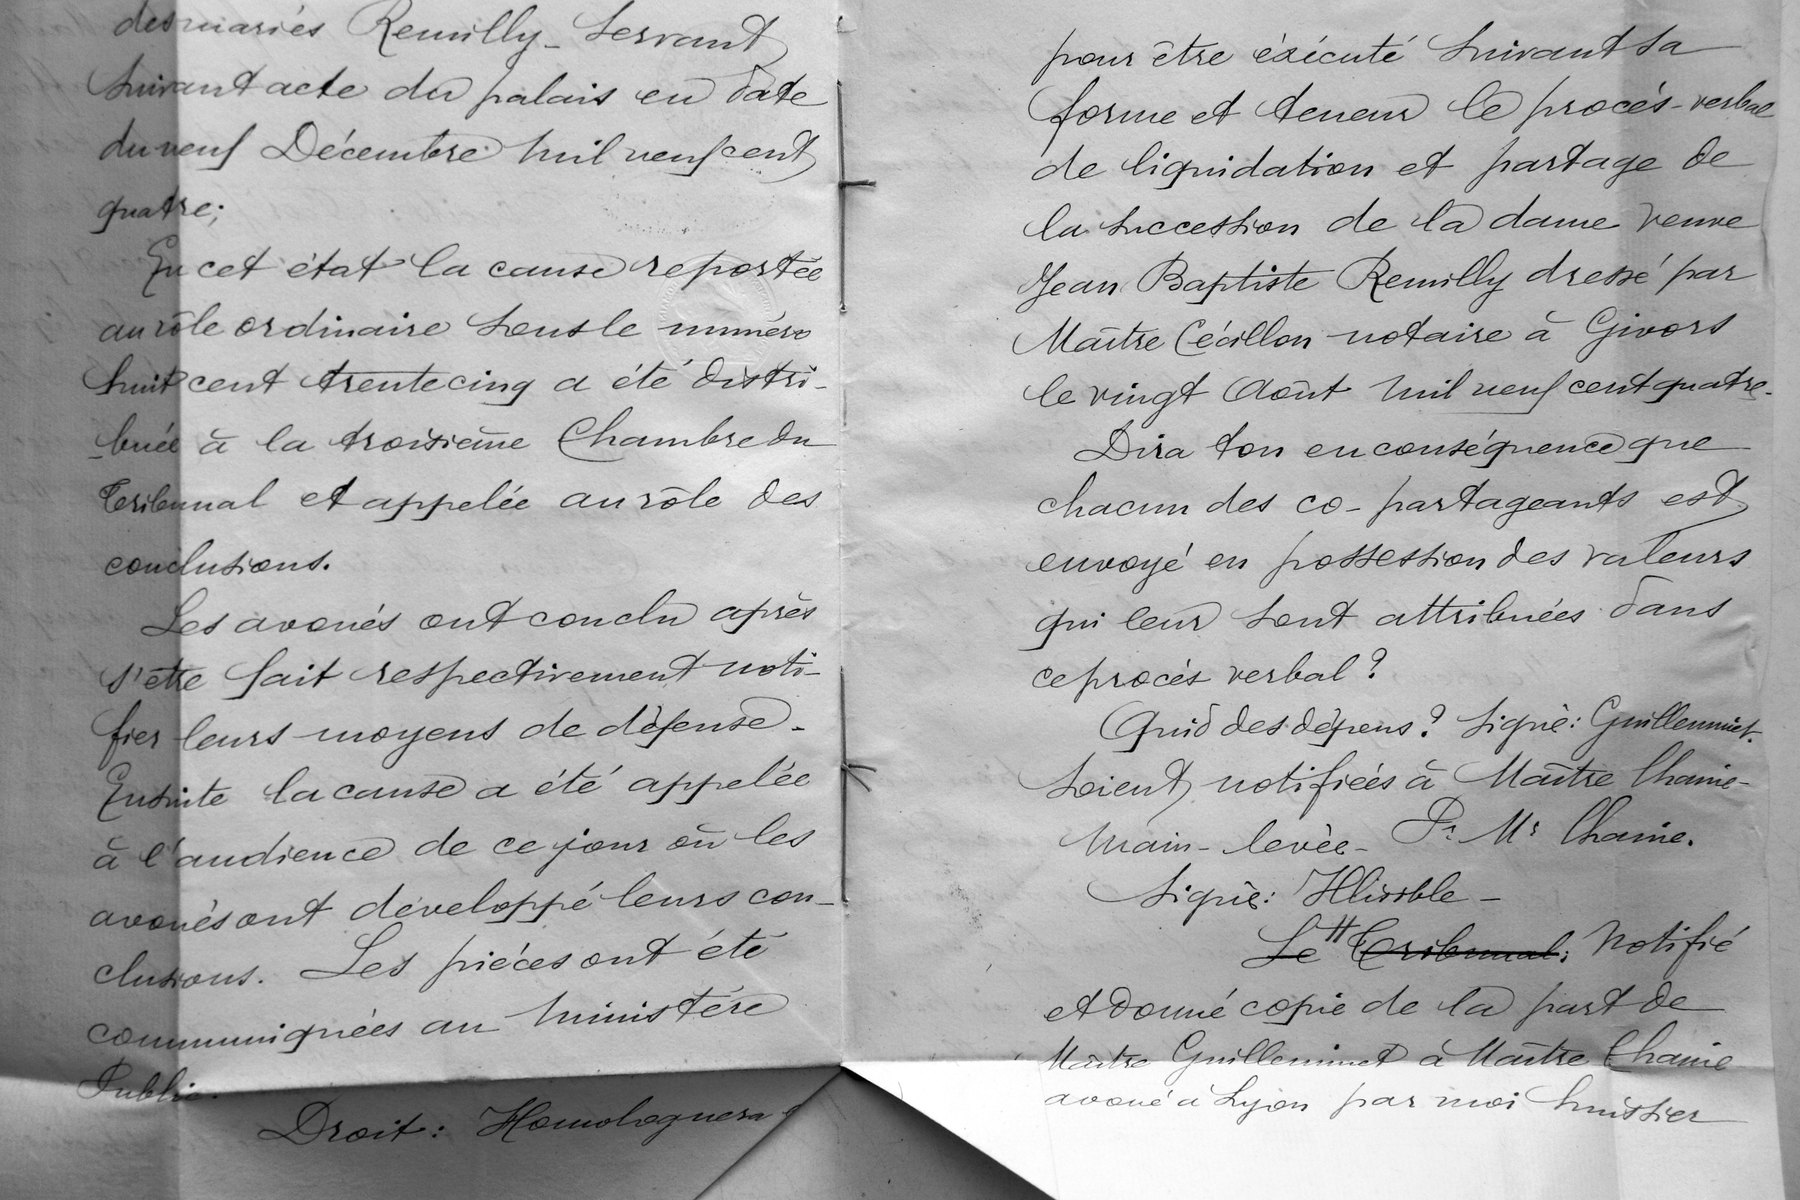 des mariés Remilly-Servant
suivant acte du palais en date
du neuf Décembre mil neuf cent
quatre;
En cet état la cause reportée
au rôle ordinaire sous le numéro
huit cent trente cinq a été distri-
buée à la troisième Chambre du
Tribunal et appelée au rôle des
conclusions.
Les avoués ont conclu après
s'être fait respectivement noti-
fier leurs moyens de défense.
Ensuite la cause a été appelée
à l'audience de ce jour où les
avoués ont développé leurs con-
clusions. Les pièces ont été
communiquées au Ministère
Public.
Droit: Homologuera t
pour être éxécuté suivant sa
forme et teneur le procès-verbal
de liquidation et partage de
la succession de la dame veuve
Jean Baptiste Remilly dressé par
Maître Cécillon notaire à Givors
le vingt Août mil neuf cent quatre.
Dira ton en conséquence que
chacun des co-partageants est
envoyé en possession des valeurs
qui leur sont attribuées dans
ce procès verbal?
Quid des dépens? Signé: Guilleminet.
Soient notifiées à Maître Chaine-
Main-levée- Pr Mr Chaine.
Signé: Illisible -
Le Tribunal; Notifié
et donné copie de la part de
Maître Guilleminet à Maître Chaine
avoué à Lyon par moi huissier